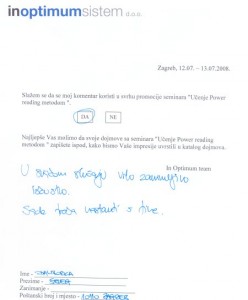 inoptimumsistem d.o.o.
Zagreb, 12.07. – 13.07.2008.
Slažem se da se moj komentar koristi u svrhu promocije seminara "Učenje Power
reading metodom".
DA
NE
Najljepše Vas molimo da svoje dojmove sa seminara "Učenje Power reading
metodom" zapišete ispod, kako bismo Vaše impresije uvrstili u katalog dojmova.
In Optimum team
U svakom slučaju vrlo zanimljivo
iskustvo.
Sada treba nastaviti s time.
Ime -
Prezime -
Zanimanje -
Poštanski broj i mjesto - ZAGREB